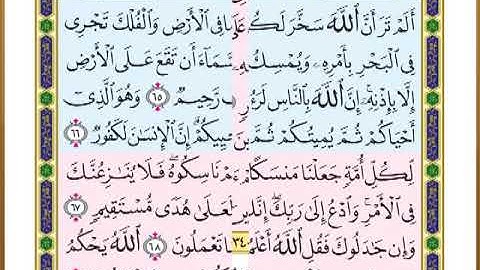 أَلَمْ تَرَ أَنَّ ٱللَّهَ سَخَّرَ فِى ٱلْأَرْضِ وَٱلْفُلْكَ تَجْرِى
فِى ٱلْبَحْرِ بِأَمْرِهِۦ وَيُمْسِكُ سَّمَآءَ أَن تَقَعَ عَلَى ٱلْأَرْضِ
إِلَّا بِإِذْنِهِۦٓ إِنَّ ٱللَّهَ بِٱلنَّاسِ رَّحِيمٌ ٦٥ وَهُوَ ٱلَّذِىٓ
أَحْيَاكُمْ ثُمَّ يُمِيتُكُمْ ثُمَّ إِنَّ ٱلْإِنسَـٰنَ لَكَفُورٌ ٦٦
لِكُلِّ أُمَّةٍ جَعَلْنَا مَنسَكًا نَاسِكُوهُ فَلَا يُنَـٰزِعُنَّكَ
فِى ٱلْأَمْرِ وَٱدْعُ إِلَىٰ رَبِّكَ لَعَلَىٰ هُدًى مُّسْتَقِيمٍ ٦٧
وَإِن جَـٰدَلُوكَ فَقُلِ ٱللَّهُ ٣٤ تَعْمَلُونَ ٦٨ ٱللَّهُ يَحْكُمُ